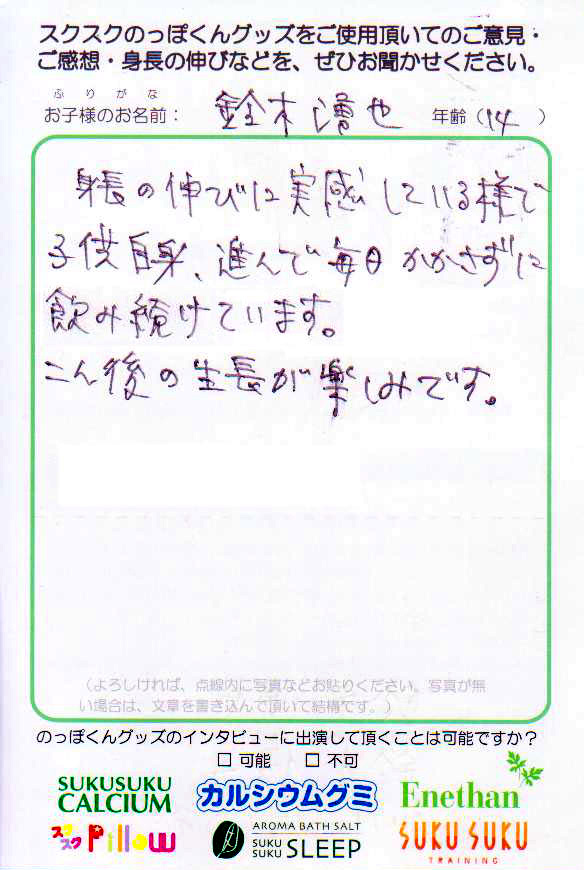 スクスクのっぽくんグッズをご使用頂いてのご意見・
ご感想・身長の伸びなどを、ぜひお聞かせください。
ふりがな
お子様のお名前： 鈴木 也 年齢（14）
身長の伸びに実感している様で
子供自身、進んで毎日かかさずに
飲み続けています。
こん後の生長が楽しみです。
（よろしければ、点線内に写真などお貼りください。写真が無
い場合は、文章を書き込んで頂いて結構です。）
のっぽくんグッズのインタビューに出演して頂くことは可能ですか？
□ 可能 □ 不可
SUKUSUKU CALCIUM
カルシウムグミ
Enethan
スクスク Pillow
AROMA BATH SALT
SUKU SUKU SLEEP
SUKU SUKU
TRAINING